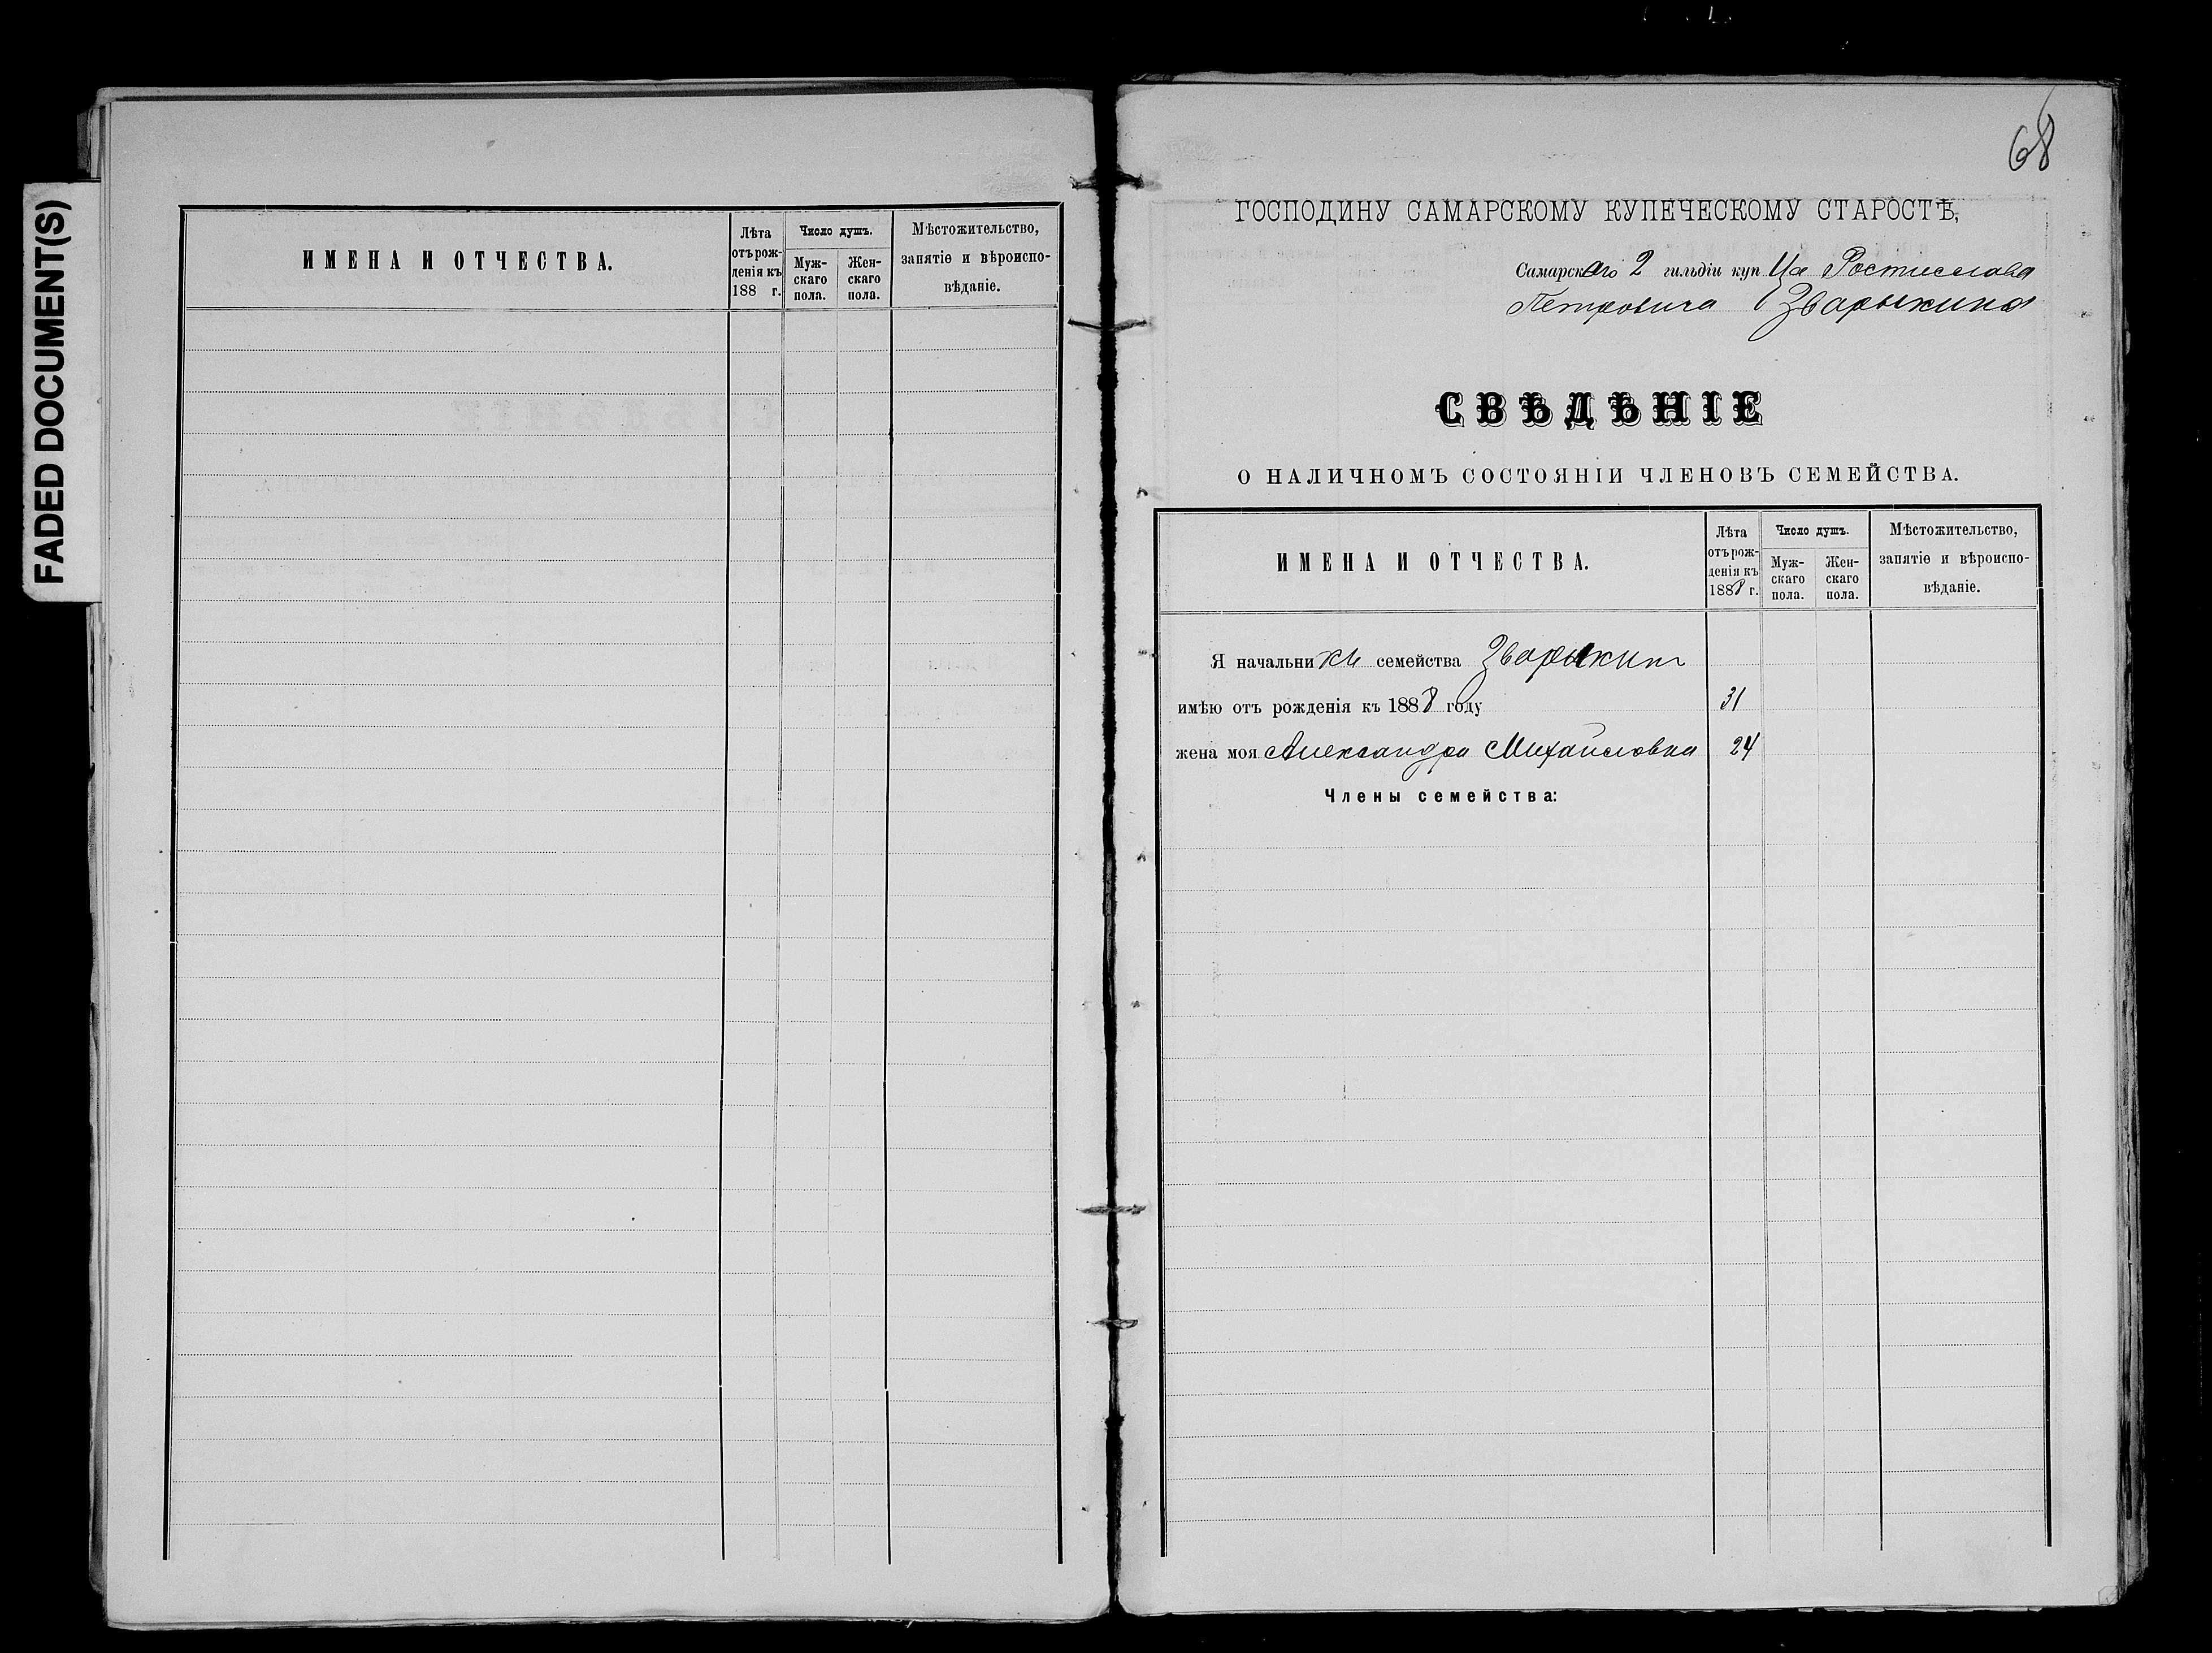 FADED DOCUMENT(S)
ИМЕНА И ОТЧЕСТВА.
Лѣта
отъ рож-
денія къ
188 г.
Число душъ.
Муж-
скаго
пола.
Жен-
скаго
пола.
Мѣстожительство,
занятіе и вѣроиспо-
вѣданіе.
68
ГОСПОДИНУ САМАРСКОМУ КУПЕЧЕСКОМУ СТАРОСТѢ,
Самарскаго 2 гильдіи купца Ростислава
Петровича Зварыкина
СВѢДѢНІЕ
О НАЛИЧНОМЪ СОСТОЯНІИ ЧЛЕНОВЪ СЕМЕЙСТВА.
ИМЕНА И ОТЧЕСТВА.
Лѣта
отъ рож-
денія къ
1888 г.
Число душъ.
Муж-
скаго
пола.
Жен-
скаго
пола.
Мѣстожительство,
занятіе и вѣроиспо-
вѣданіе.
Я начальникъ семейства Зварыкинъ
имѣю отъ рожденія къ 1888 году 31
жена моя Александра Михайловна 24
Члены семейства: